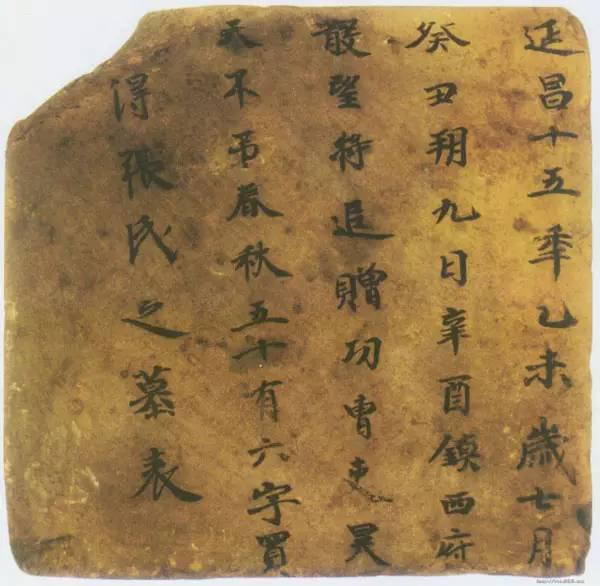 延昌十五年乙未歲七月
癸丑朔九日辛酉鎮西府
散望将追贈功曹吏昊
天不吊春秋五十有六字買
得張氏之墓表